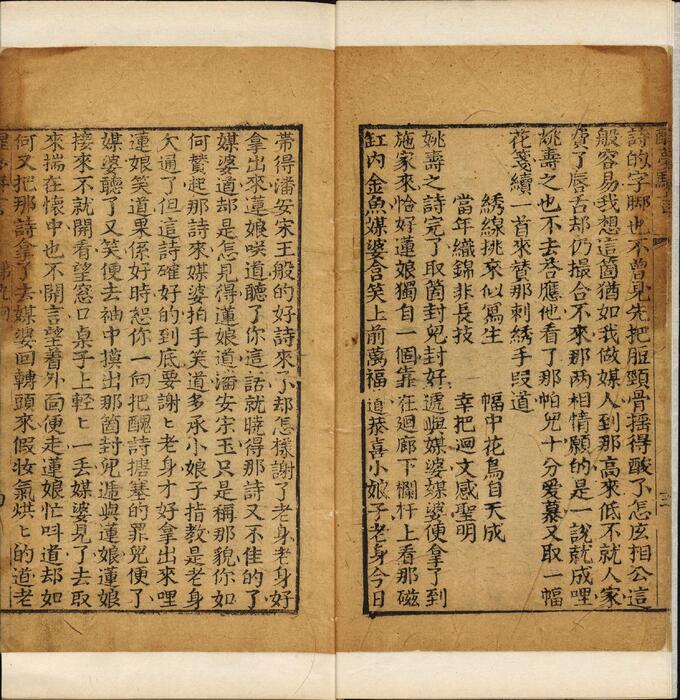 醒夢駢言
三
詩的字脚也不曾見先把脰頸骨搖得酸了怎庅相公這
般容易我想這箇猶如我做媒人到那高來低不就人家
費了唇舌却仍撮合不來那两相情願的是一說就成哩
姚壽之也不去荅應他看了那帕兒十分爱慕又取一幅
花箋續一首來賛那刺綉手叚道
綉線挑來似寫生　幅中花鳥自天成
當年織錦非長技　幸把迴文感聖明
姚壽之詩完了取箇封兒封好遞與媒婆媒婆便拿了到
施家來恰好蓮娘獨自一個靠在迴廊下欄杆上看那磁
缸内金魚媒婆含笑上前萬福道恭喜小娘子老身今日
帶得潘安宋王般的好詩來了却怎樣謝了老身老身好
拿出來蓮娘咲道聽了你這話就曉得那詩又不佳的了
媒婆道却是怎見得蓮娘道潘安宋玉只是稱那貌你如
何賛起那詩來媒婆拍手笑道多承小娘子指教是老身
欠通了但這詩確好的到底要謝ヒ老身才好拿出來哩
蓮娘笑道果係好時恕你一向把醜詩搪塞的罪兒便了
媒婆聽了又笑便去袖中摸出那箇封兒遞與蓮娘蓮娘
接來不就開看望窓口桌子上輕ヒ一丢媒婆見了去取
來揣在懷中也不開言望着外面便走蓮娘忙呌道却如
何又把那詩拿了去媒婆回轉頭來假妝氣烘ヒ的道老
第九回